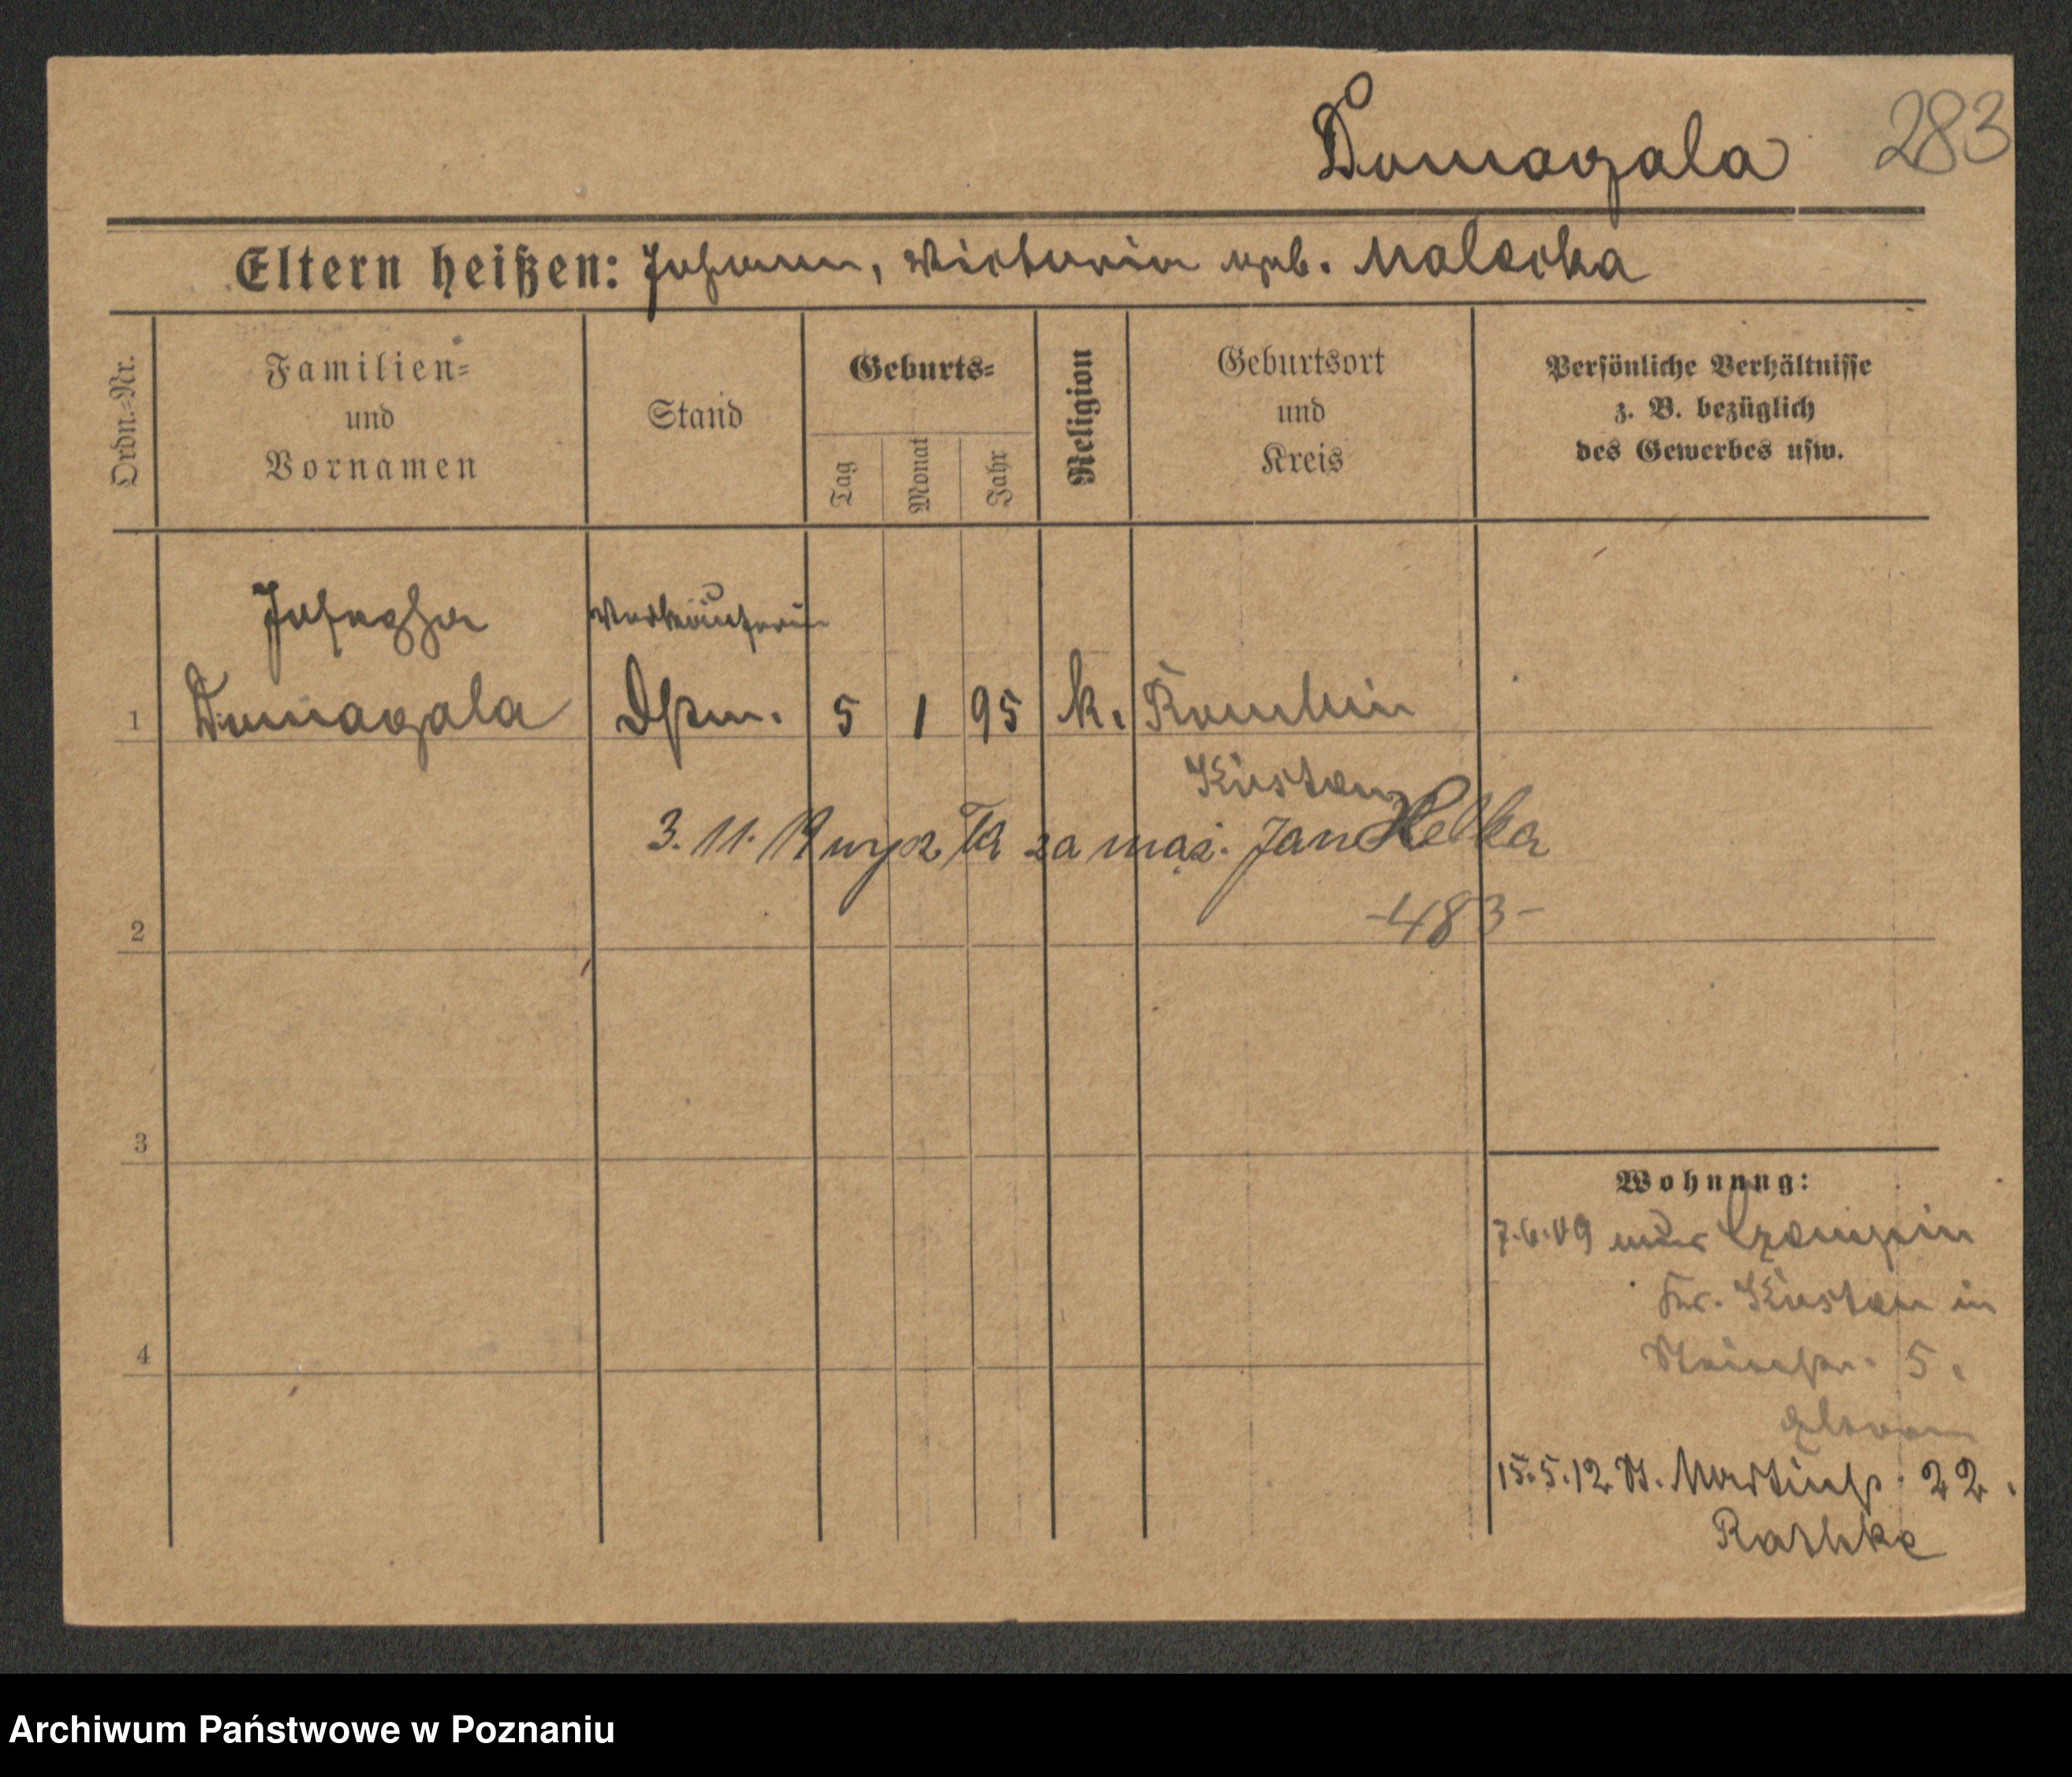 Domagala 283
Eltern heißen: Johann, Victoria geb. Malecka
Ordn.=Nr.
Familien=
und
Vornamen
Stand
Geburts=
Tag
Monat
Jahr
Religion
Geburtsort
und
Kreis
Persönliche Verhältnisse
z. B. bezüglich
des Gewerbes usw.
Josepha Verkäuferin
1 Domagala Dstm. 5 1 95 k. Rombin
Kosten
3. 11. 19 wysz za mąż. Jan Helka
-483-
2
3
4
Wohnung:
7.6.09 Czempin
Kr. Kosten in
5.
15.5.12 St. Martinstr. 22.
Raschke
Archiwum Państwowe w Poznaniu